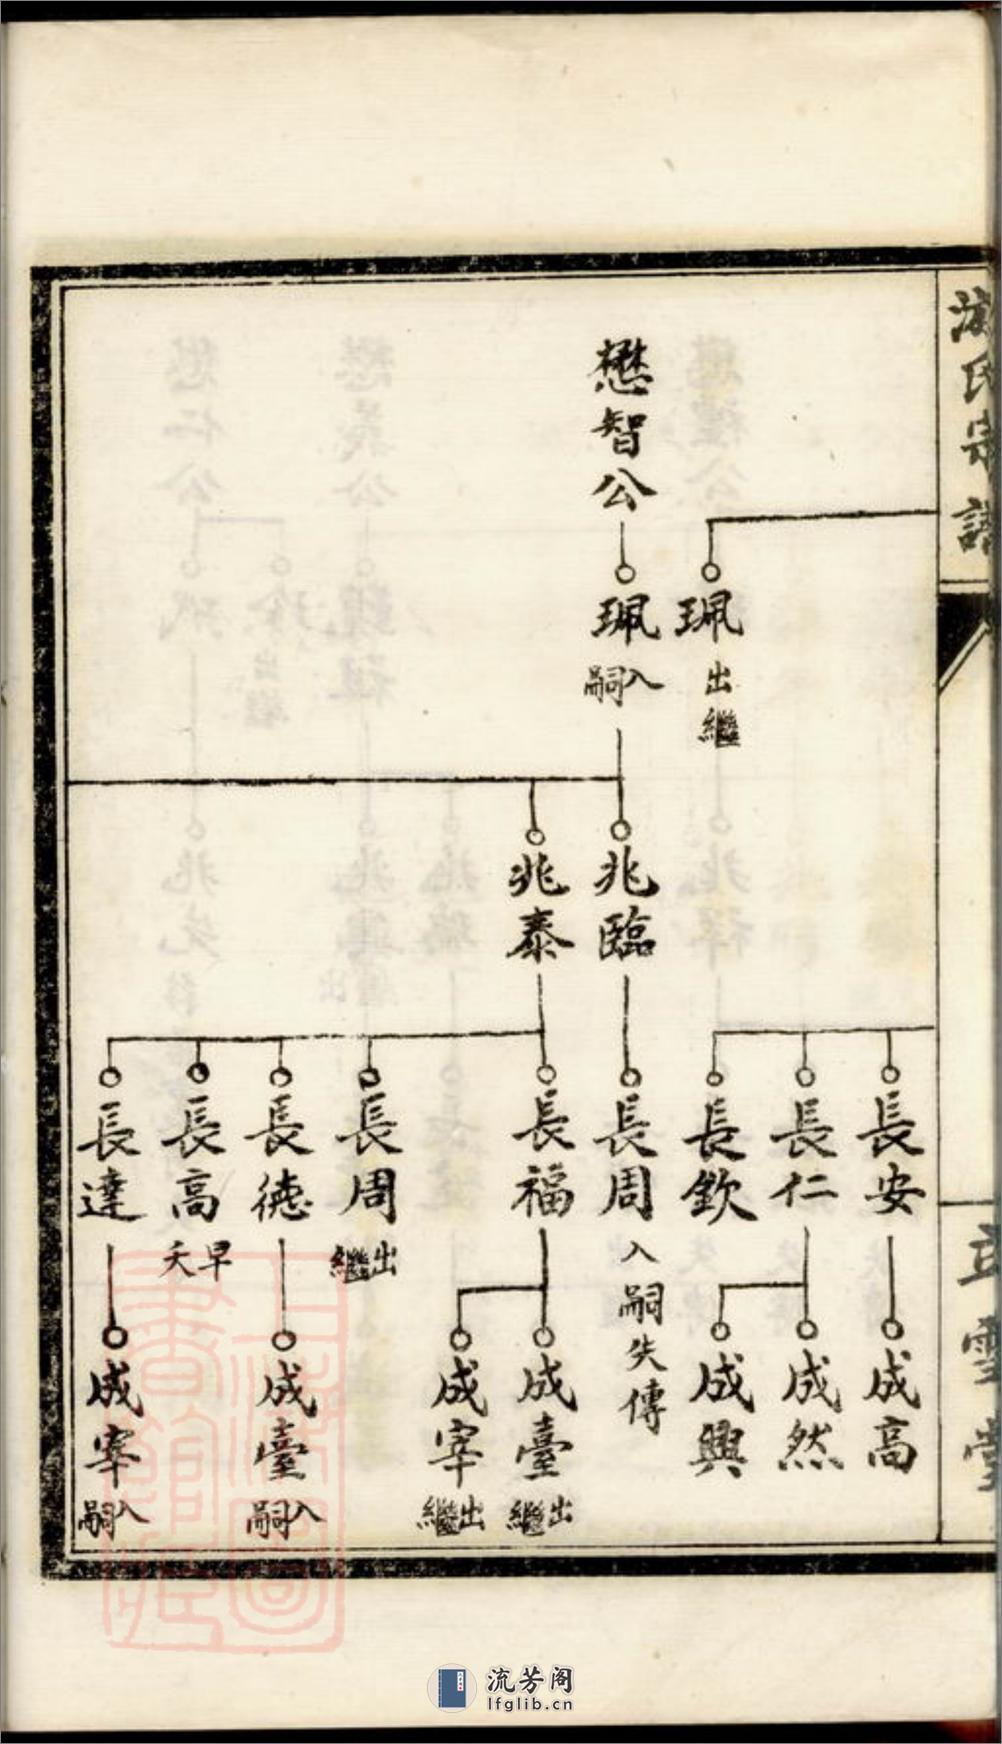 氏宗譜
珮
出繼
懋智公
珮
入嗣
兆臨
兆泰
長安
長仁
長欽
長周
入嗣失傳
長福
長周
出繼
長德
長高
早夭
長達
成高
成然
成興
成臺
出繼
成宰
出繼
成臺
入嗣
成宰
入嗣
雪堂
上海圖書館藏
流芳阁
lfglib.cn